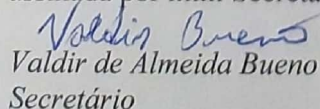 Valdir Bueno
Valdir de Almeida Bueno
Secretário